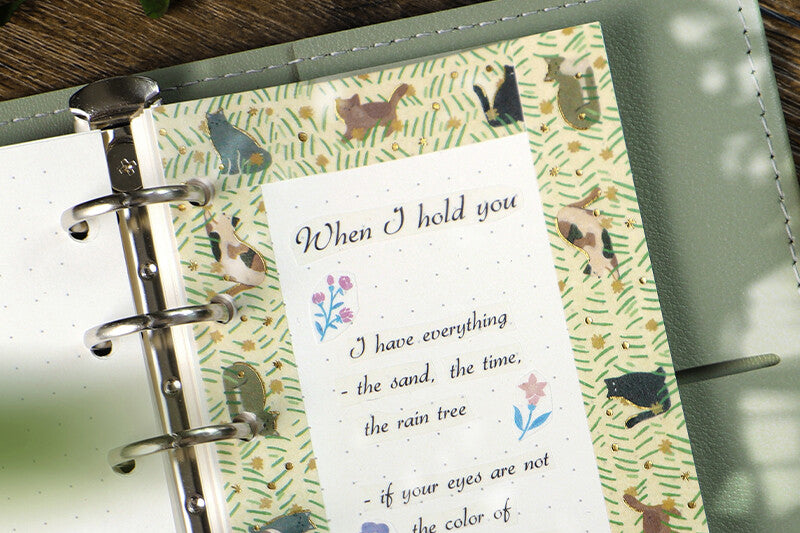 When I hold you
I have everything
- the sand, the time,
the rain tree
- if your eyes are not
the color of